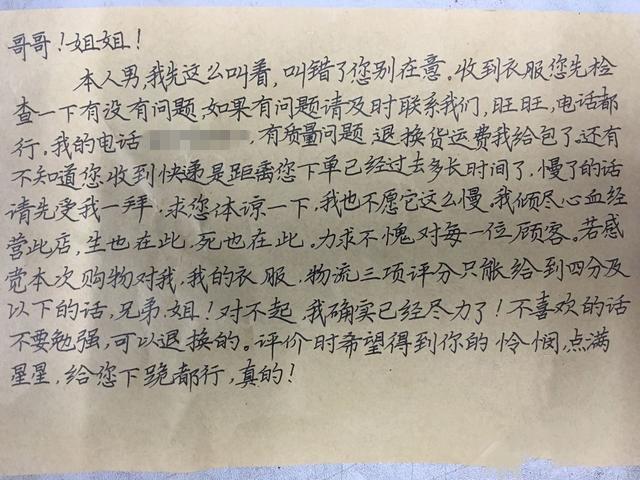 哥哥！姐姐！
本人男，我先这么叫着，叫错了您别在意。收到衣服您先检
查一下有没有问题，如果有问题请及时联系我们，旺旺，电话都
行，我的电话，有质量问题退换货运费我给包了。还有
不知道您收到快递是距离您下单已经过去多长时间了，慢了的话
请先受我一拜，求您体谅一下，我也不愿它这么慢，我倾尽心血经
营此店，生也在此，死也在此。力求不愧对每一位顾客。若感
觉本次购物对我，我的衣服，物流三项评分只能给到四分及
以下的话，兄弟，姐！对不起，我确实已经尽力了！不喜欢的话
不要勉强，可以退换的。评价时希望得到你的怜悯，点满
星星，给您下跪都行，真的！